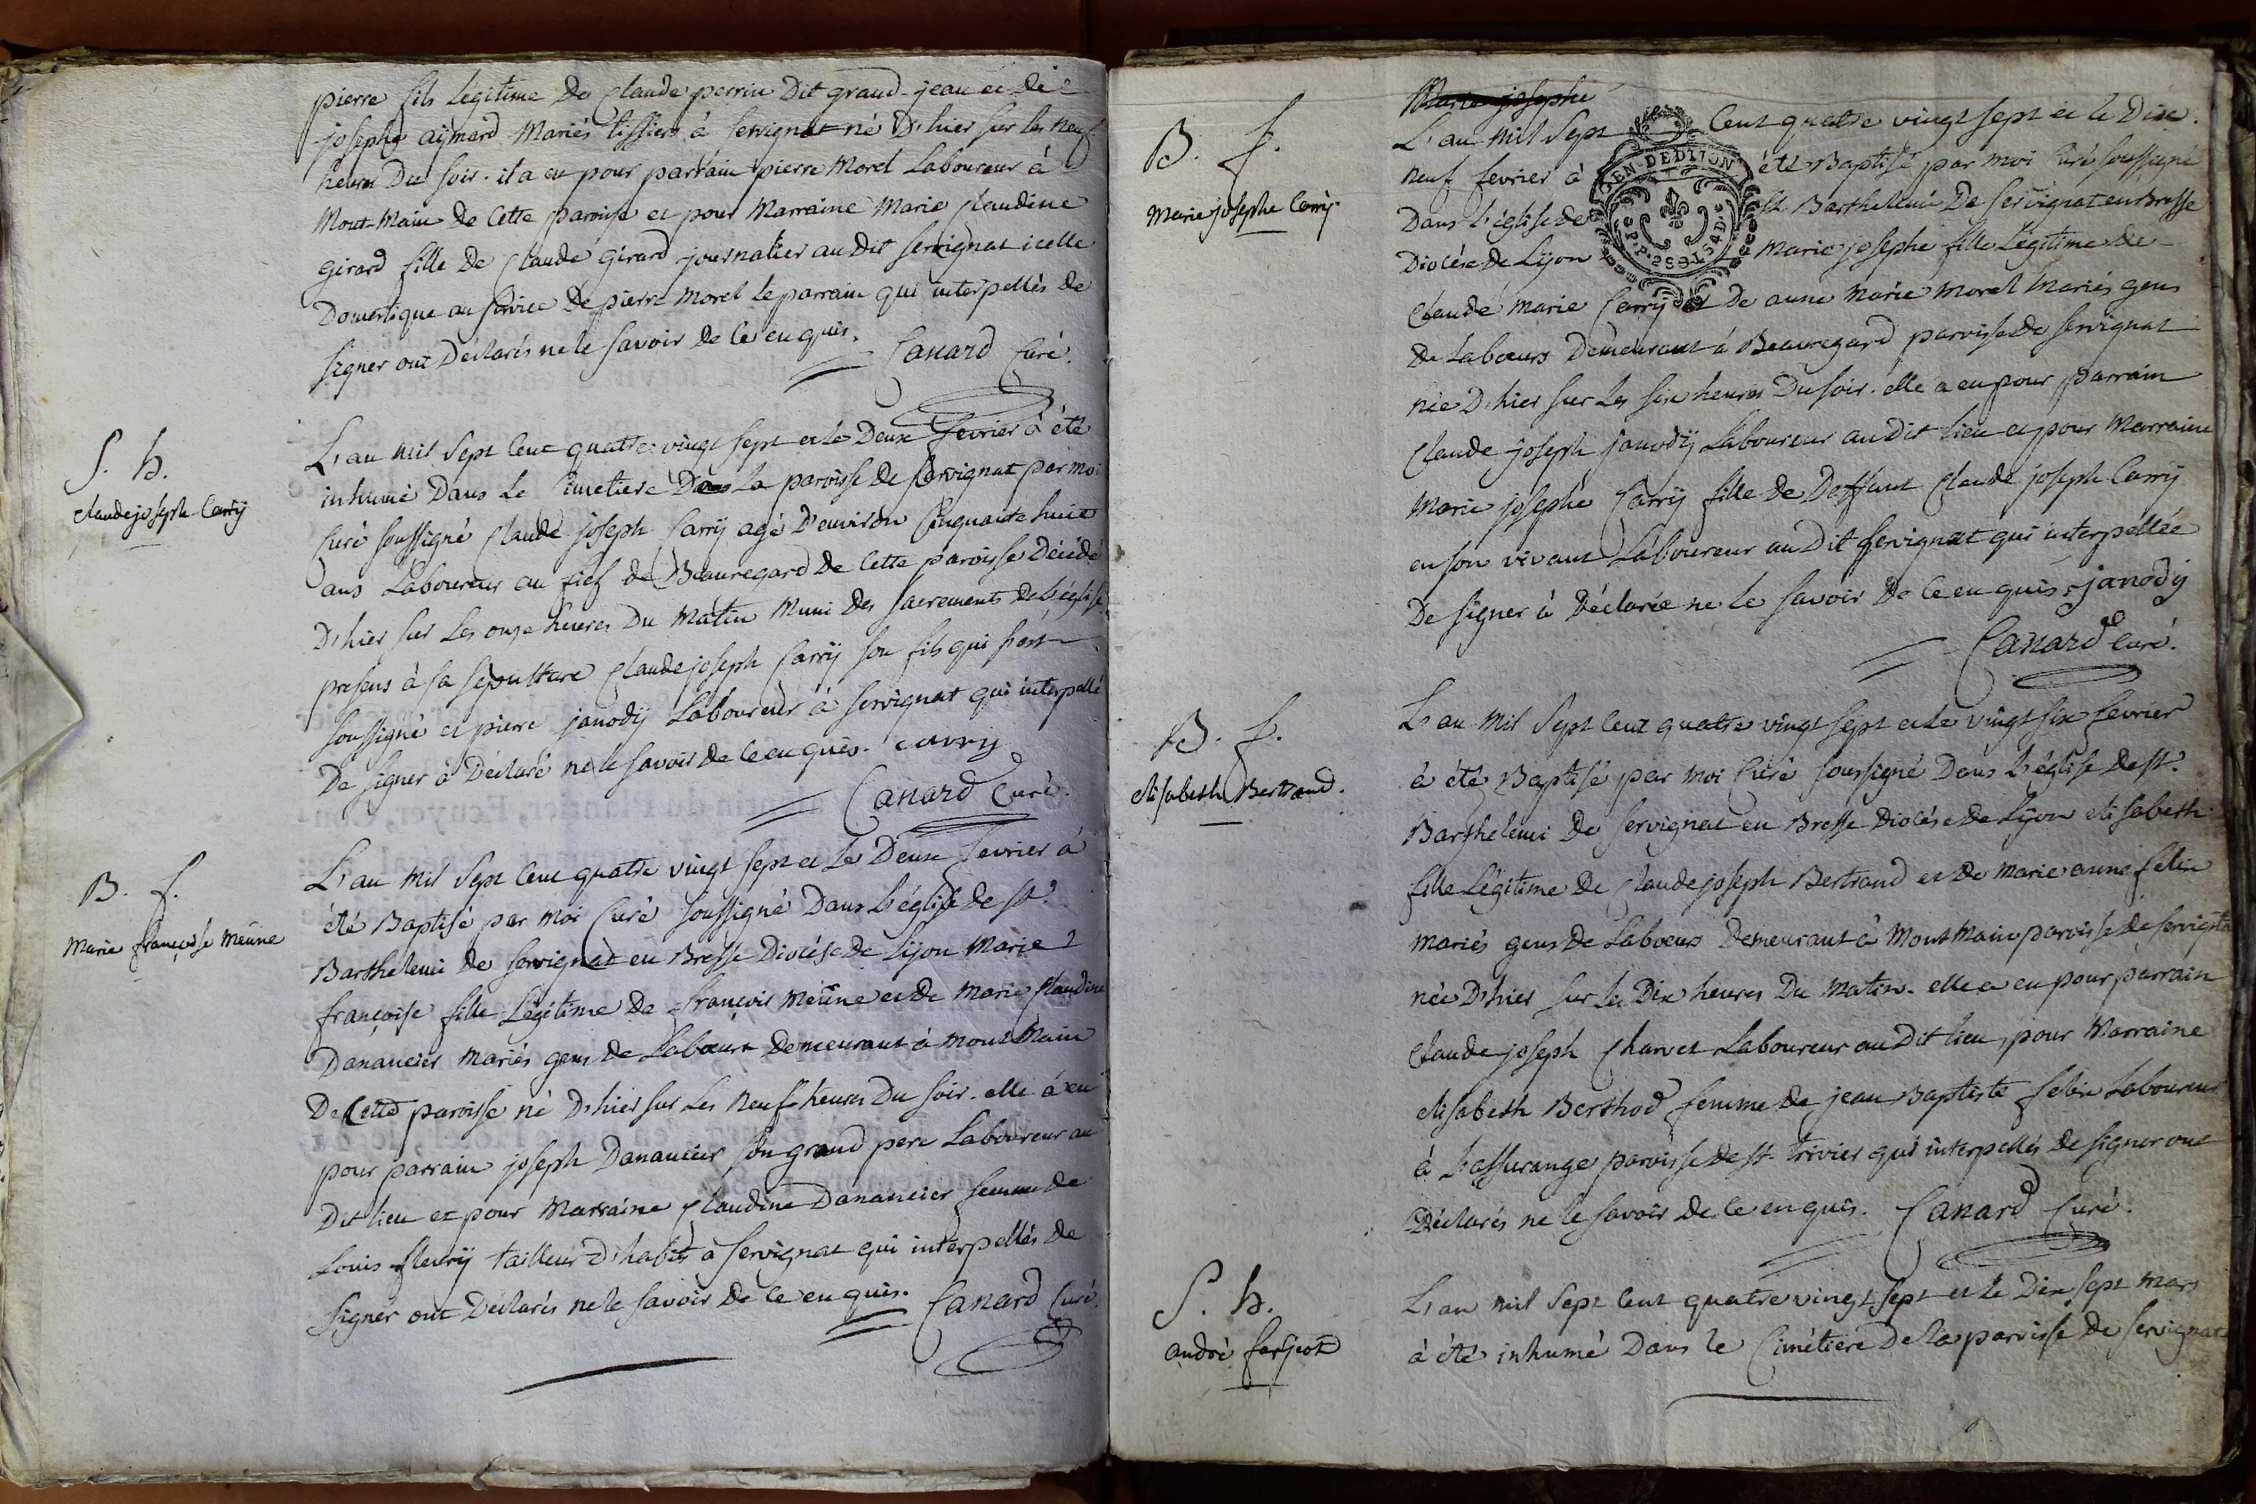 pierre fils Légitime De Claude perrin Dit grand-jean et de
josephe aymard Mariés tissiers à Servignat né D'hier sur les neuf
heures Du soir. il a eu pour parrain pierre Morel Laboureur à
Mont-Main de Cette paroisse et pour Marraine Marie Claudine
Girard fille De Claude Girard journalier au Dit Servignat icelle
Domestique au service De pierre Morel le parrain qui interpellés de
signer ont Déclarés ne le savoir de Ce enquis.
Canard Curé.
S. h.
Claude joseph Carry
L'an Mil Sept Cent quatre vingt sept et le Deux fevrier à été
inhumé Dans Le Cimetiere De La paroisse de Servignat par moi
Curé soussigné Claude joseph Carrÿ agé D'environ Cinquante huit
ans Laboureur au fief de Beauregard De Cette paroisse Décédé
D'hier sur Les onze heures Du Matin Muni des sacrements De l'église
presens à sa sépulture Claude joseph Carrÿ son fils qui s'est
soussigné et pierre janodÿ Laboureur à Servignat qui interpellé
De signer à Déclaré ne le savoir de Ce enquis. Carry
Canard Curé.
B. f.
Marie françoise Meúne
L'an Mil Sept Cent quatre vingt sept et Le Deux fevrier à
été Baptisé par Moi Curé soussigné Dans L'église de St
Barthelemi de Servignat en Bresse Diocése De Lÿon Marie
françoise fille Légitime De françois Meúne et De Marie Claudine
Danancier Mariés gens de Labœurs Demeurant à Mont Main
De Cette paroisse né D'hier sur Les Neuf heures Du soir. elle à eu
pour parrain joseph Danancier son grand pere Laboureur au
Dit lieu et pour Marraine Claudine Danancier femme de
Louis fleurÿ tailleur D'habits à Servignat qui interpellés de
signer ont Déclarés ne le savoir De Ce enquis. Canard Curé
B. f.
Marie josephe Carrÿ.
Marie josephe
L'an Mil Sept Cent quatre vingt sept et le Dix
neuf fevrier à été Baptisé par moi Curé soussigné
Dans L'église de St Barthelemi De Servignat en Bresse
Diocése de Lÿon Marie josephe fille Légitime de
GEN. DE DIJON
Claude Marie Carrÿ et De anne Marie Morel Mariés gens
de Labœurs Demeurant à Beauregard paroisse De Servignat
née D'hier sur Les six heures Du soir. elle a eu pour parrain
Claude joseph janodÿ Laboureur au Dit lieu et pour Marraine
Marie josephe Carrÿ fille de Deffunt Claude joseph Carrÿ
en son vivant Laboureur au Dit Servignat qui interpellée
De signer à Déclarée ne le savoir De Ce enquis. janodÿ
Canard Curé.
B. f.
elisabeth Bertrand.
L'an Mil Sept Cent quatre vingt sept et Le vingt six fevrier
à été Baptisé par moi Curé soussigné Dans L'église De St
Barthelemi De Servignat en Bresse Diocése De Lÿon elisabeth
fille Légitime De Claude joseph Bertrand et De Marie anne felix
mariés gens De Labœurs Demeurant à Mont Main paroisse de Servignat
née D'hier sur les Dix heures Du Matin. elle a eu pour parrain
Claude joseph Charvet Laboureur au Dit lieu, pour Marraine
elisabeth Berthod femme De jean Baptiste felix Laboureur
à L'assurange paroisse De St trivier qui interpellés De signer ont
Déclarés ne le savoir De Ce enquis. Canard Curé.
S. h.
andré farjeot
L'an Mil Sept Cent quatre vingt sept et le Dix sept Mars
à été inhumé Dans le Cimétiere De la paroisse de Servignat